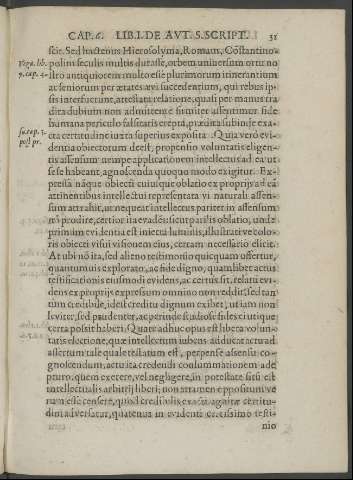 CAP. 6. LIB. I. DE AVT. S. SCRIPT. 31
scit. Sed hactenus Hierosolyma, Romam, Cōstantino-
polim seculis multis durasse, orbem universum ortu no
stro antiquiorem multo esse plurimorum itinerantium
ac seniorum per ætates sibi succedentium, qui rebus ip-
sis interfuerunt, attestata relatione, quasi per manus tra
dita dubium non admittente firmiter assentimur fide
humana periculo falsitatis erepta, prædita subinde exa-
cta certitudine iuxta superius exposita. Quia verò evi-
dentia obiectorum deest, propensio voluntatis eligen-
tis assensum nempe applicationem intellectus ad ea ut
sese habeant, agnoscenda quoquo modo exigitur. Ex-
pressa nāque obiecti cuiusque oblatio ex propriis ad eā
attinentibus intellectui repræsentata vi naturali assen-
sum attrahit, ut nequeat intellectus pariter in assensum
nō prodire, certior ita evadēs, sicut par illis oblatio, unde
primum evidentia est iniecta luminis, illustrative colo-
ris obiecti visui visionem eius, certam necessario elicit.
At ubi nō ita, sed alieno testimonio quicquam offertur,
quantumvis explorato, ac fide digno, quamlibet actus
testificationis eiusmodi evidens, ac certus sit, relati evi-
dens ex propriis expressum omnino non reddit, sed tan
tum credibile, id est creditu dignum exibet, ut iam non
leviter, sed prudenter, ac perinde studiose filex eiutique
certa possit haberi. Quare adhuc opus est libera volun-
tatis electione, quæ intellectum iubens adducat actu ad
assertum tale quale testatum est, perpense assensu co-
gnoscendum, actu ita credendi consummationem ade
pturo, quem exerere, vel negligere, in potestate siti est
intellectualis arbitrij liberi; non attamen opposituni ve
rum esse censere, quod credibilis exacta agnitæ certitu-
dini adversatur, quatenus in evidenti certissimo testi-
nio
Vega. lib.
9. cap. 4.
su. cap. 3.
post pr.